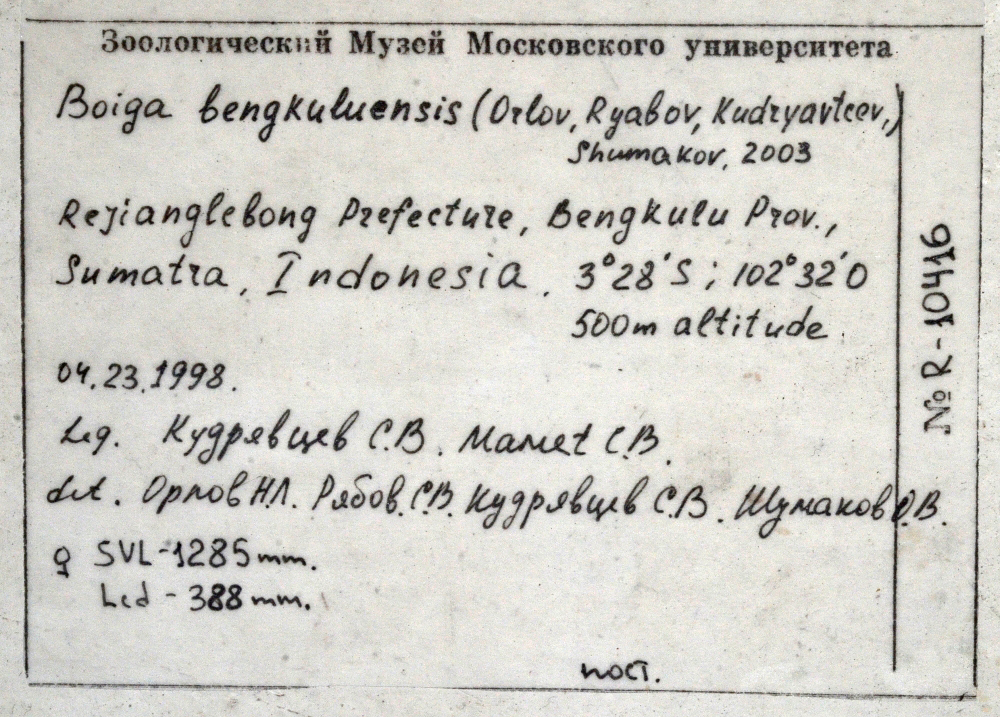 Зоологический Музей Московского университета
Boiga bengkuluensis (Orlov, Ryabov, Kudryavtcev,)
Shumakov, 2003
Rejianglebong Prefecture, Bengkulu Prov.,
Sumatra, Indonesia. 3°28'S; 102°32'O
500m altitude.
04.23.1998.
Leg. Кудрявцев С.В. Мамет С.В.
det. Орлов Н.Л. Рябов С.В. Кудрявцев С.В. Шумаков О.В.
♀ SVL-1285mm.
Lcd - 388mm.
пост.
№ R-10416